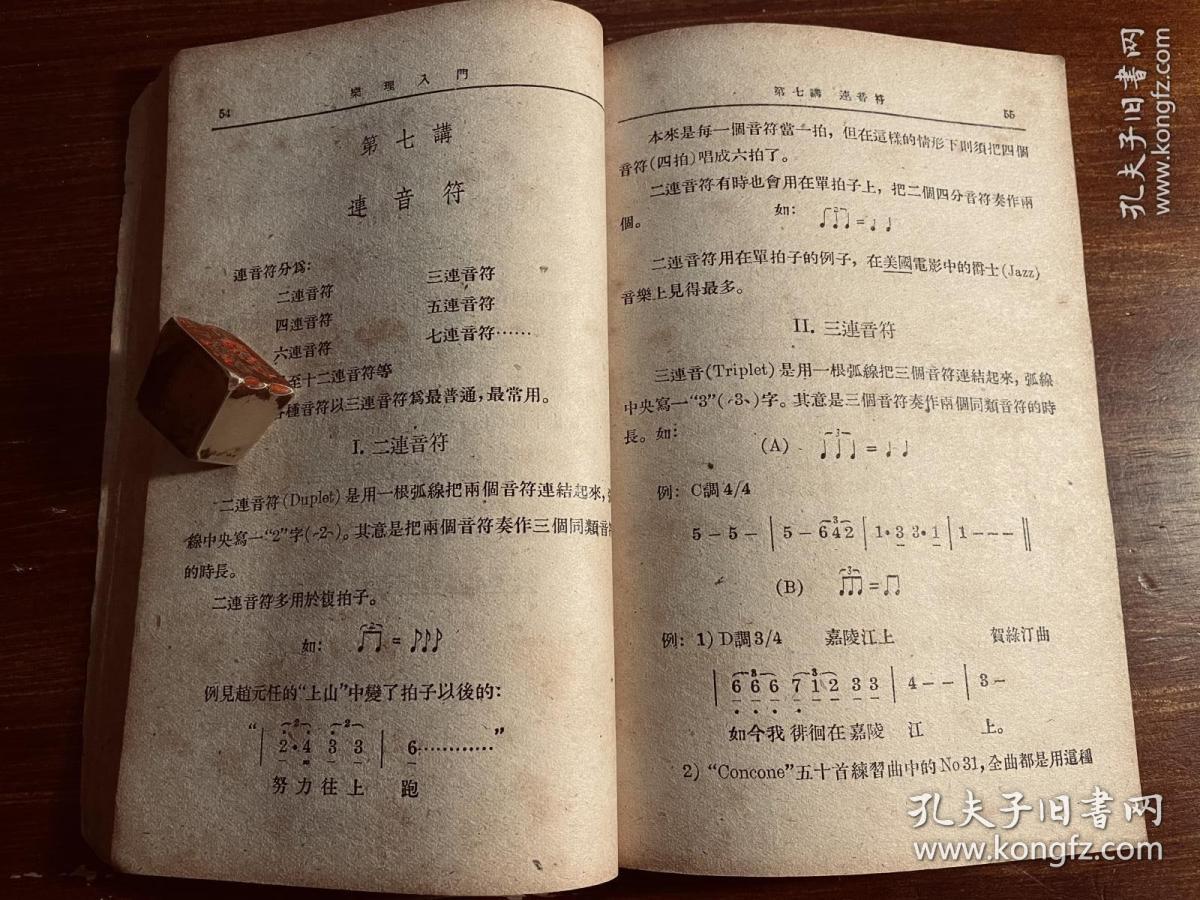 54
樂理入門
第七講
連音符
連音符分爲:
二連音符 三連音符
四連音符 五連音符
六連音符 七連音符……
至十二連音符等
種音符以三連音符爲最普通,最常用。
I. 二連音符
二連音符(Duplet)是用一根弧線把兩個音符連結起來,
線中央寫一“2”字(2)。其意是把兩個音符奏作三個同類音
的時長。
二連音符多用於復拍子。
如: =
例見趙元任的“上山”中變了拍子以後的:
“| 2·4 3 3 | 6…………”
努力往上 跑
第七講 連音符
55
本來是每一個音符當一拍,但在這樣的情形下則須把四個
音符(四拍)唱成六拍了。
二連音符有時也會用在單拍子上,把二個四分音符奏作兩
個。 如: =
二連音符用在單拍子的例子,在美國電影中的爵士(Jazz)
音樂上見得最多。
II. 三連音符
三連音(Triplet)是用一根弧線把三個音符連結起來,弧線
中央寫一“3”(3)字。其意是三個音符奏作兩個同類音符的時
長。如:
(A) ♩♩♩ = ♩♩
例: C調4/4
5 – 5 – | 5 – 6 4 2 | 1·3 3·1 | 1 – – – ‖
(B) ♫♪ = ♫
例: 1) D調3/4 嘉陵江上 賀綠汀曲
| 6 6 6 7 1 2 3 3 | 4 – – | 3 –
如今我徘徊在嘉陵 江 上。
2) “Concone”五十首練習曲中的No31,全曲都是用這種
孔夫子旧书网
www.kongfz.com
孔夫子旧书网
www.kongfz.com